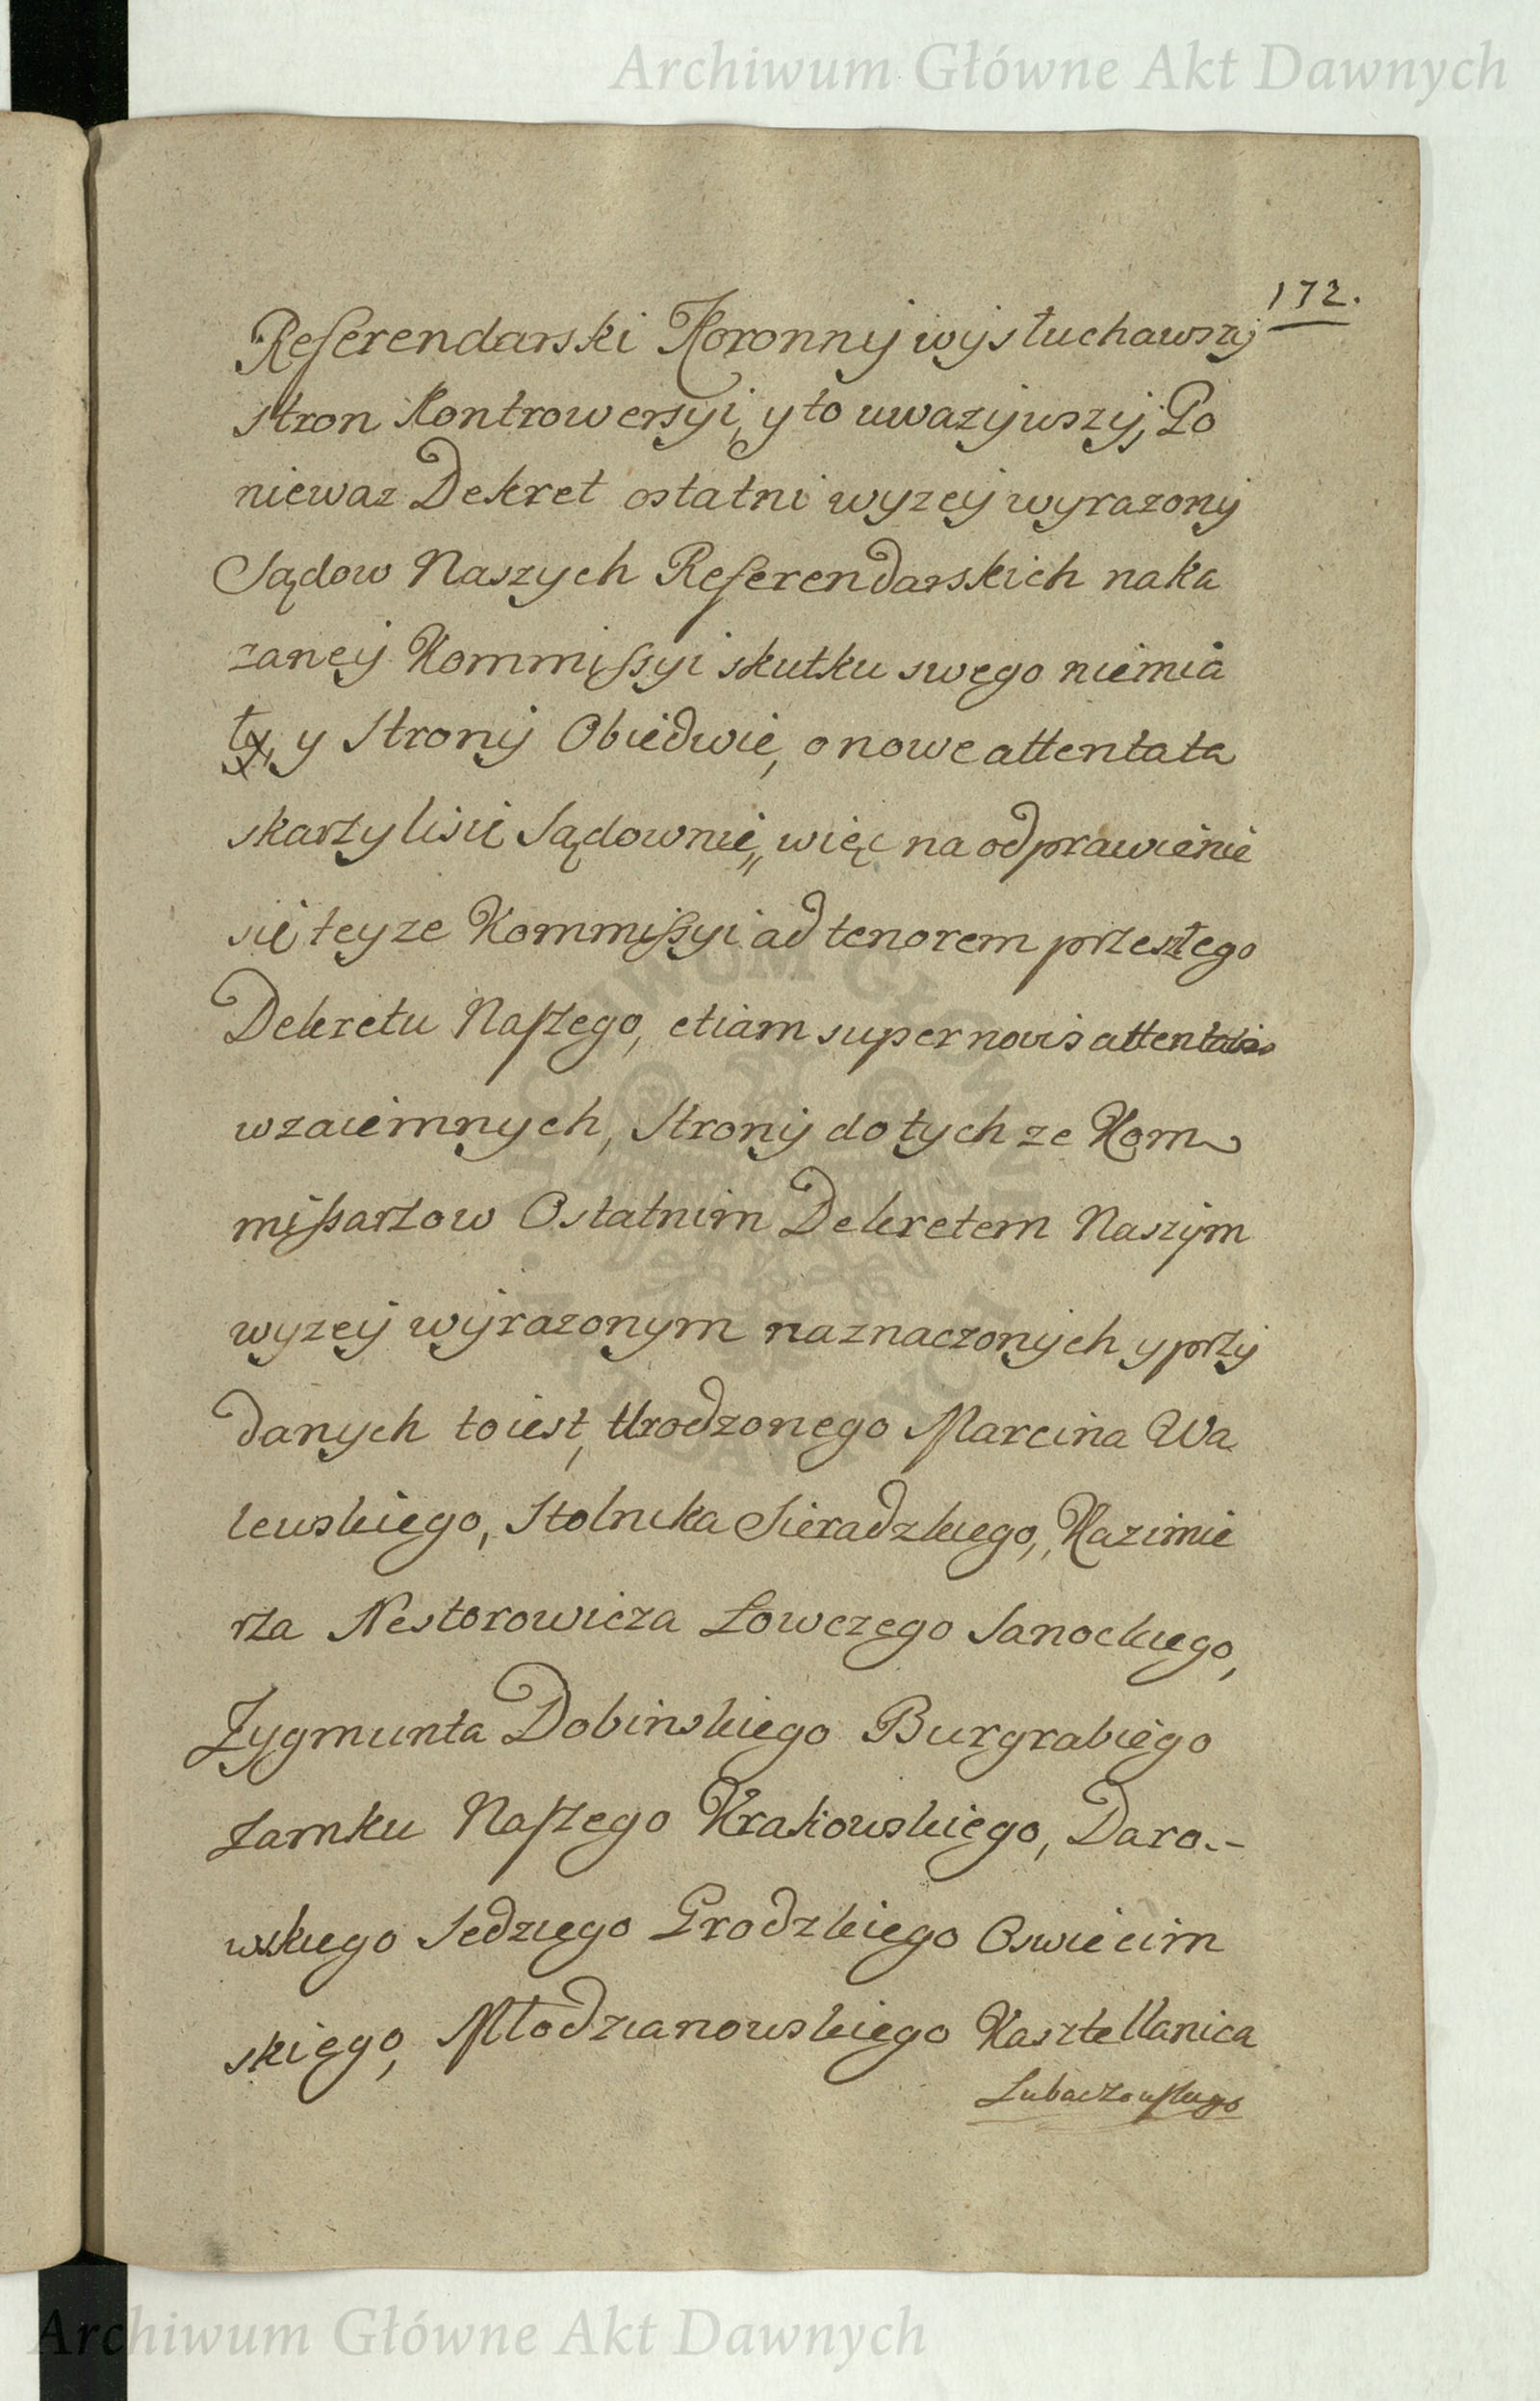 Archiwum Główne Akt Dawnych
172.
Referendarski Koronny wysłuchawszy
stron Kontrowersyi, y to uwazywszy, Po
niewaz Dekret ostatni wyzey wyrazony
Sądow Naszych Referendarskich naka
zaney Kommissyi skutku swego niemia
ły, y Strony Obiedwie, o nowe attentata
skarzyli sie Sądownie, więc na odprawienie
się teyze Kommissyi ad tenorem przeszłego
Dekretu Naszego, etiam super novis attentatis
wzaiemnych, Strony do tych ze Kom
missarzow Ostatnim Dekretem Naszym
wyzey wyrazonym naznaczonych y przy
danych to iest, Urodzonego Marcina Wa
lewskiego, Stolnika Sieradzkiego, Kazimie
rza Nestorowicza Łowczego Sanockiego,
Zygmunta Dobinskiego Burgrabiego
Zamku Naszego Krakowskiego, Daro.-
wskiego Sedziego Grodzkiego Oswiecim
skiego, Młodzianowskiego Kasztellanica
Lubaczowskiego
Archiwum Główne Akt Dawnych